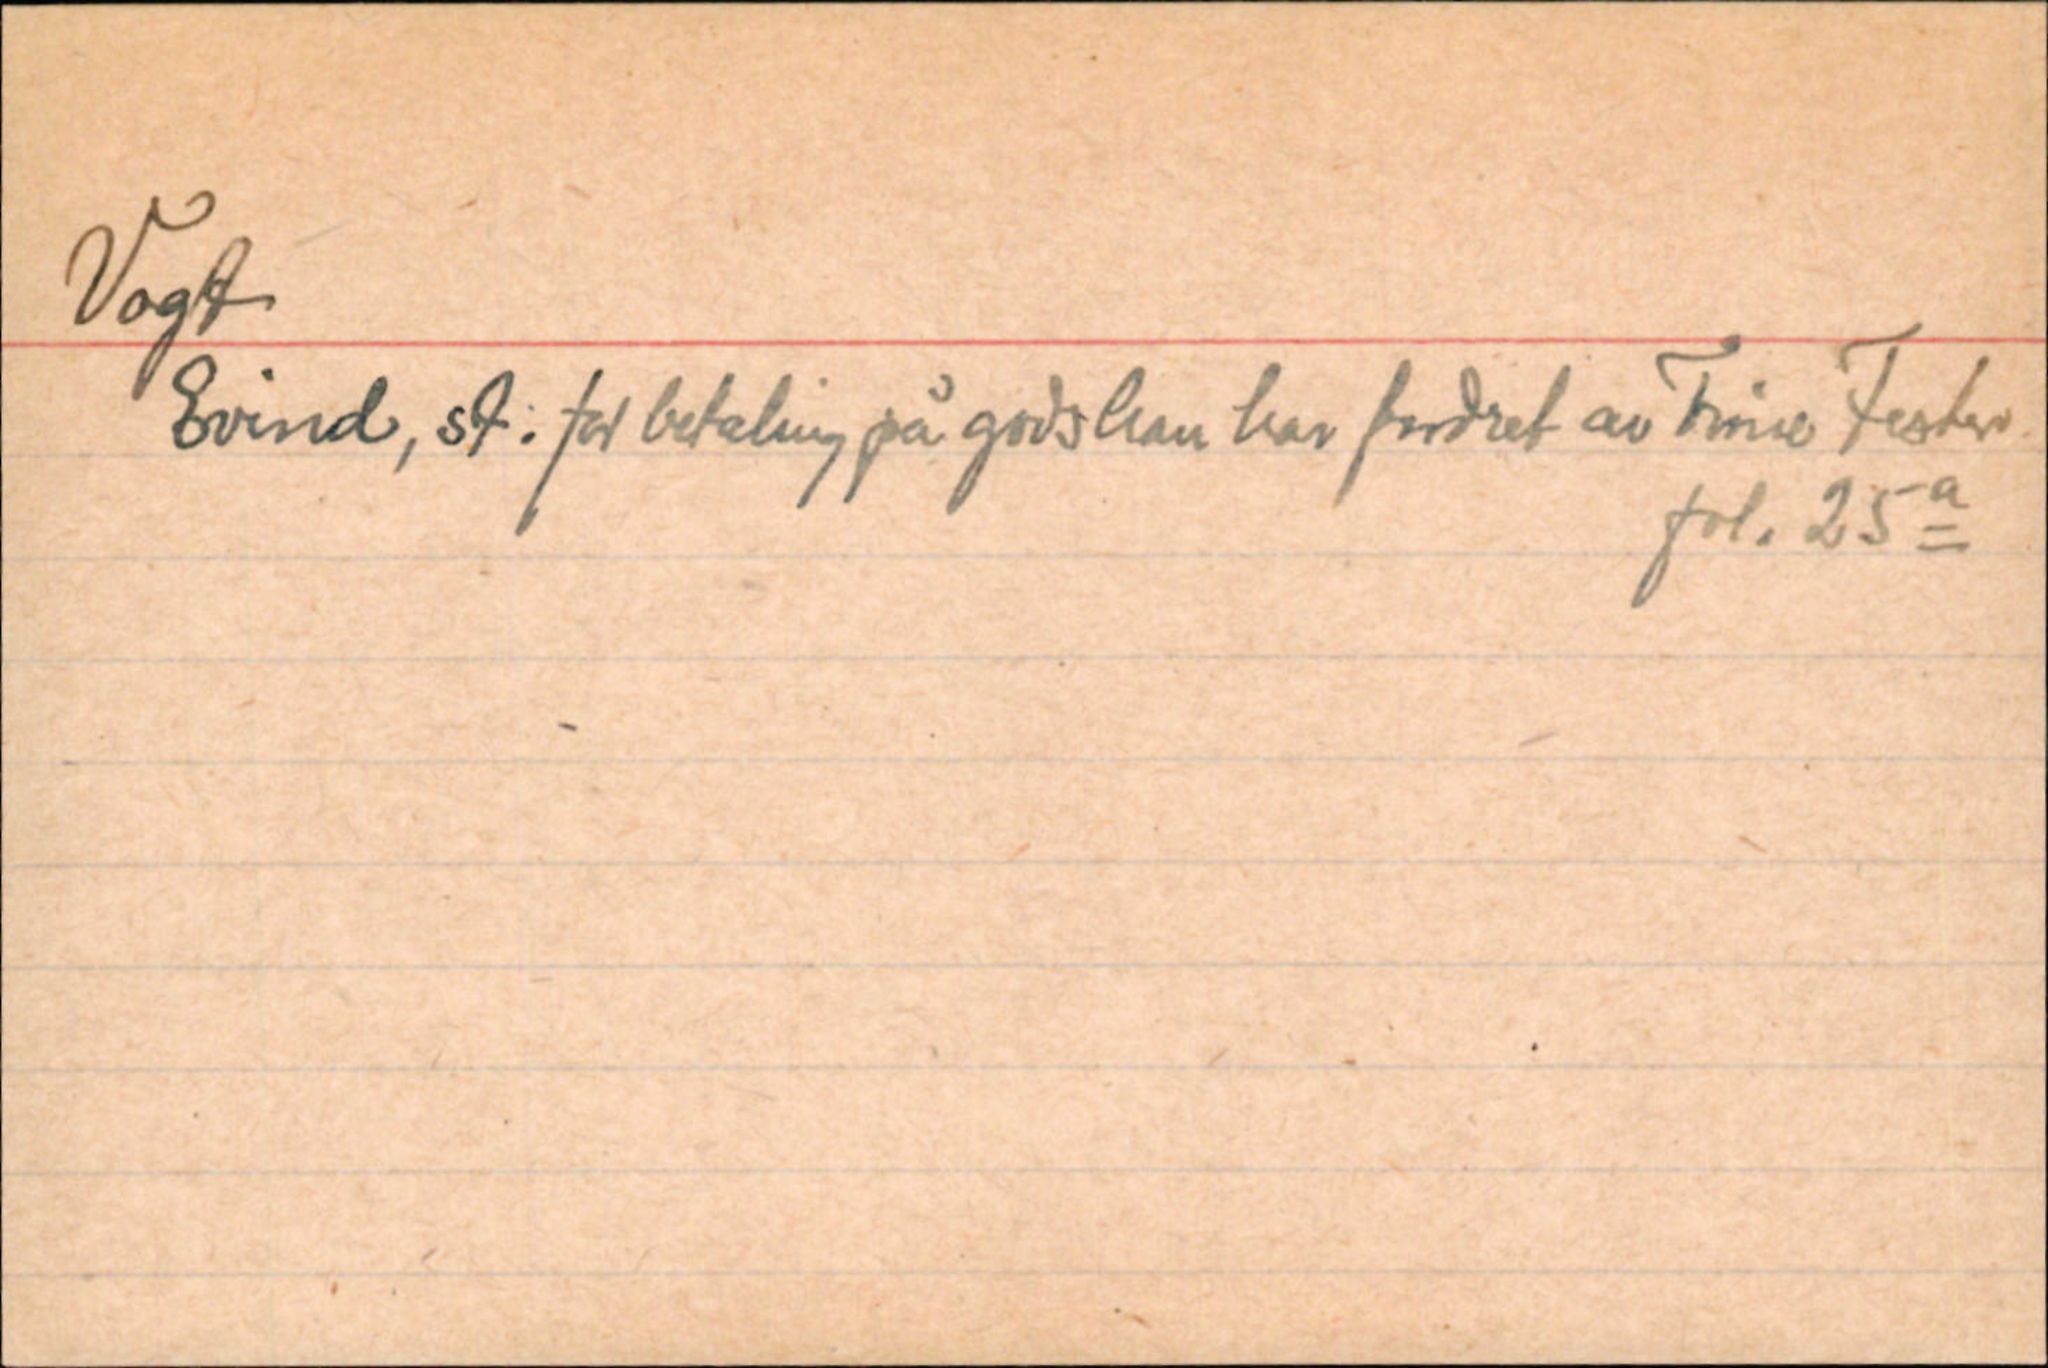 Vogt
Evind, st: får betaling på gods han har fordret av Trine Fester
fol. 25 a